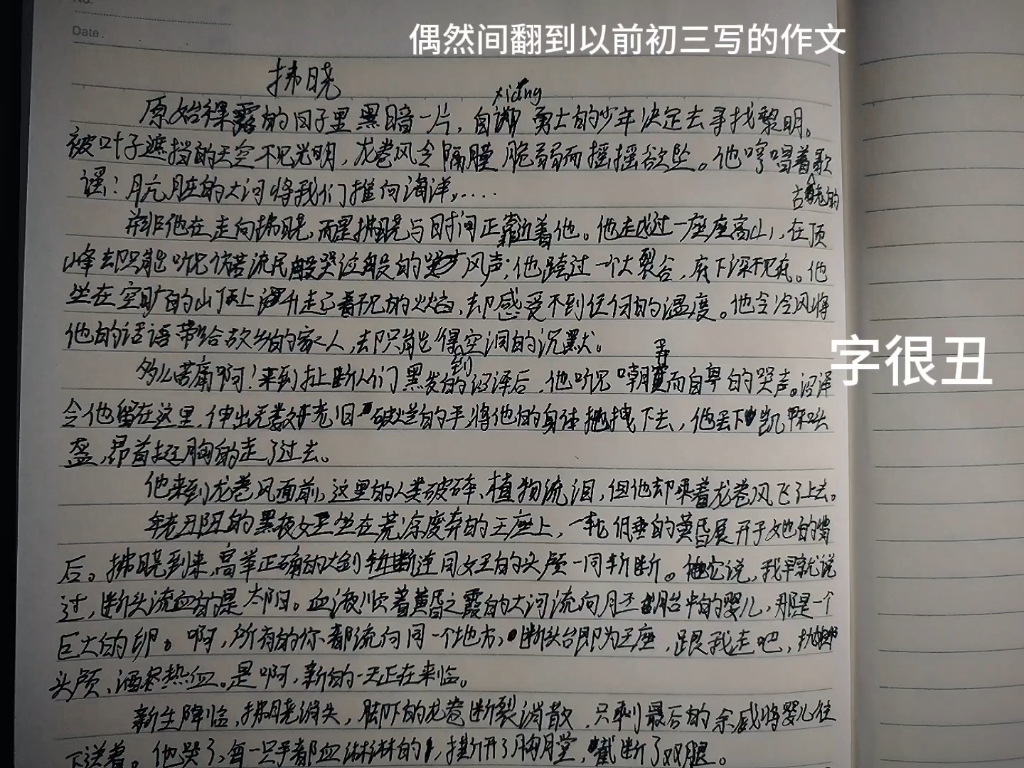 No.
Date.
偶然间翻到以前初三写的作文
拂晓
xiang
原始裸露的日子里黑暗一片，自诩勇士的少年决定去寻找黎明。
被叶子遮挡的天空不见光明，龙卷风令隔膜脆弱而摇摇欲坠。他哼唱着歌
谣：肮脏的大河将我们推向海洋……
古老的
并非他在走向拂晓，而是拂晓与时间正靠近着他。他走过一座座高山，在顶
峰却只能听见仿若流民般哭泣般的风声；他跨过一个大裂谷，底下深不见底。他
坐在空旷的山顶上升起了看不见的火焰，却感受不到任何的温度。他令冷风将
他的话语带给故乡的家人，却只能得空洞的沉默。
字很丑
多么苦痛啊！来到扯断人们黑发的沼泽后，他听见嘲而自卑的哭声。沼泽
令他留在这里，伸出无数破烂的手将他的身体拖拽下去，他丢下凯头
盔，昂首挺胸的走了过去。
他来到龙卷风面前，这里的人类破碎、植物流泪，但他却乘着龙卷风飞了上去。
丑陋的黑夜女王坐在荒凉废弃的王座上，一轮低垂的黄昏展开于她的背
后。拂晓到来，高举正确的大剑斩断连同女王的头颅一同斩断。它说，我早就说
过，断头流血的是太阳。血液顺着黄昏之霞的大河流向月中的婴儿，那是一个
巨大的卵。啊，所有的你都流向同一个地方，断头台即为王座，跟我走吧，抛
头颅、洒尽热血。是啊，新的一天正在来临。
新生降临，拂晓消失，脚下的龙卷断裂消散，只剩最后的余威将婴儿往
下送着。他哭了，每一只手都血淋淋的，撕开了胸膛，截断了双腿。